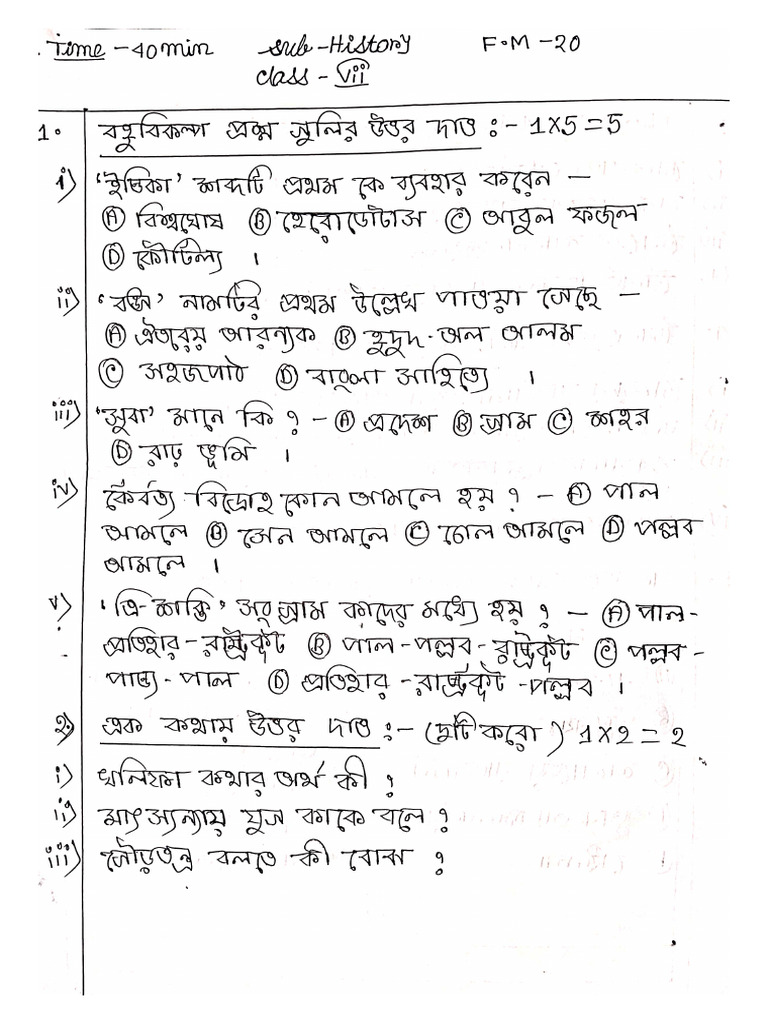 Time - 40 min sub - History F.M - 20
class - VII
1. বহুবিকল্প প্রশ্ন গুলির উত্তর দাও :- 1X5=5
i) 'ইন্ডিকা' শব্দটি প্রথম কে ব্যবহার করেন —
Ⓐ বিশ্বঘোষ Ⓑ হেরোডোটাস Ⓒ আবুল ফজল
Ⓓ কৌটিল্য ।
ii) 'বঙ্গ' নামটির প্রথম উল্লেখ পাওয়া গেছে —
Ⓐ ঐতরেয় আরন্যক Ⓑ হুদুদ-অল আলম
Ⓒ সহজপাঠ Ⓓ বাংলা সাহিত্যে ।
iii) 'সুবা' মানে কি ? - Ⓐ প্রদেশ Ⓑ গ্রাম Ⓒ শহর
Ⓓ রাঢ় ভূমি ।
iv) কৈর্বত্য বিদ্রোহ কোন আমলে হয় ? - Ⓐ পাল
আমলে Ⓑ সেন আমলে Ⓒ চোল আমলে Ⓓ পল্লব
আমলে ।
v) 'ত্রি-শক্তি' সংগ্রাম কাদের মধ্যে হয় ? - Ⓐ পাল-
প্রতিহার - রাষ্ট্রকূট Ⓑ পাল - পল্লব - রাষ্ট্রকূট Ⓒ পল্লব -
পান্ড্য - পাল Ⓓ প্রতিহার - রাষ্ট্রকূট - পল্লব ।
2. এক কথায় উত্তর দাও :- (দুটি করো) 1X2=2
i) খলিফা কথার অর্থ কী ?
ii) মাৎস্যন্যায় যুগ কাকে বলে ?
iii) গৌড়তন্ত্র বলতে কী বোঝ ?